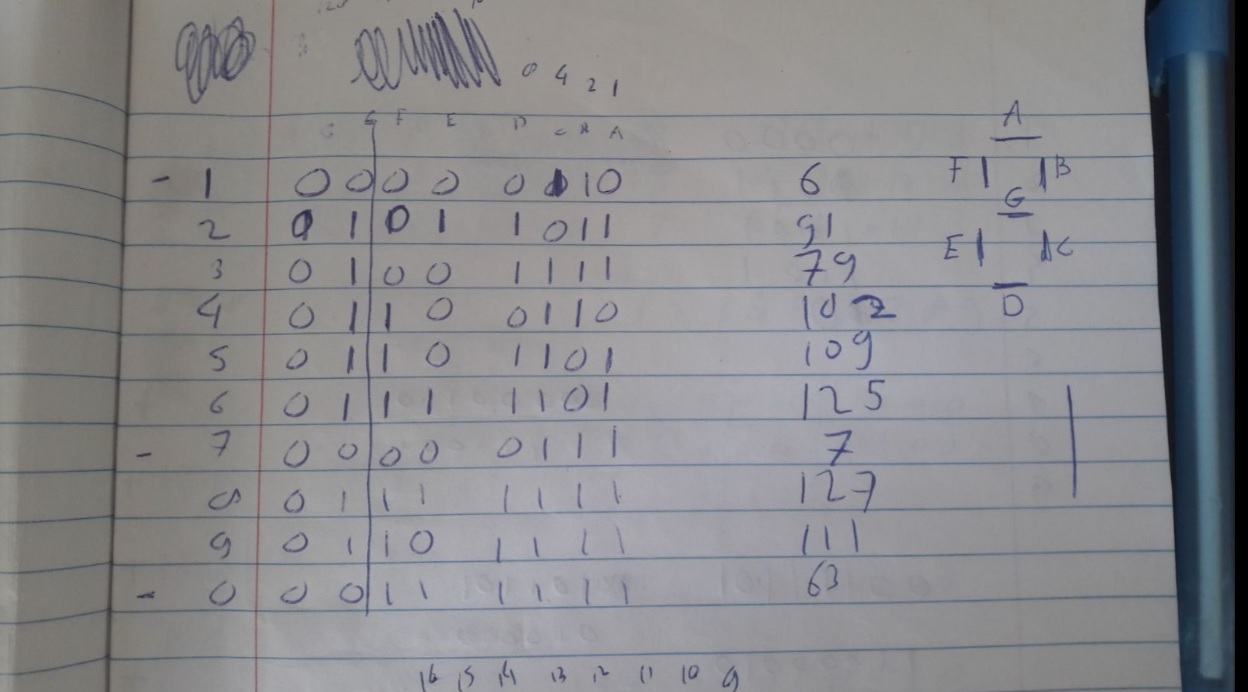 0 4 2 1
G F E D C B A
- 1 0 0 0 0 0 1 1 0 6
2 0 1 0 1 1 0 1 1 91
3 0 1 0 0 1 1 1 1 79
4 0 1 1 0 0 1 1 0 102
5 0 1 1 0 1 1 0 1 109
6 0 1 1 1 1 1 0 1 125
- 7 0 0 0 0 0 1 1 1 7
8 0 1 1 1 1 1 1 1 127
9 0 1 1 0 1 1 1 1 111
- 0 0 0 1 1 1 1 1 1 63
16 15 14 13 12 11 10 9
A
F B
G
E C
D